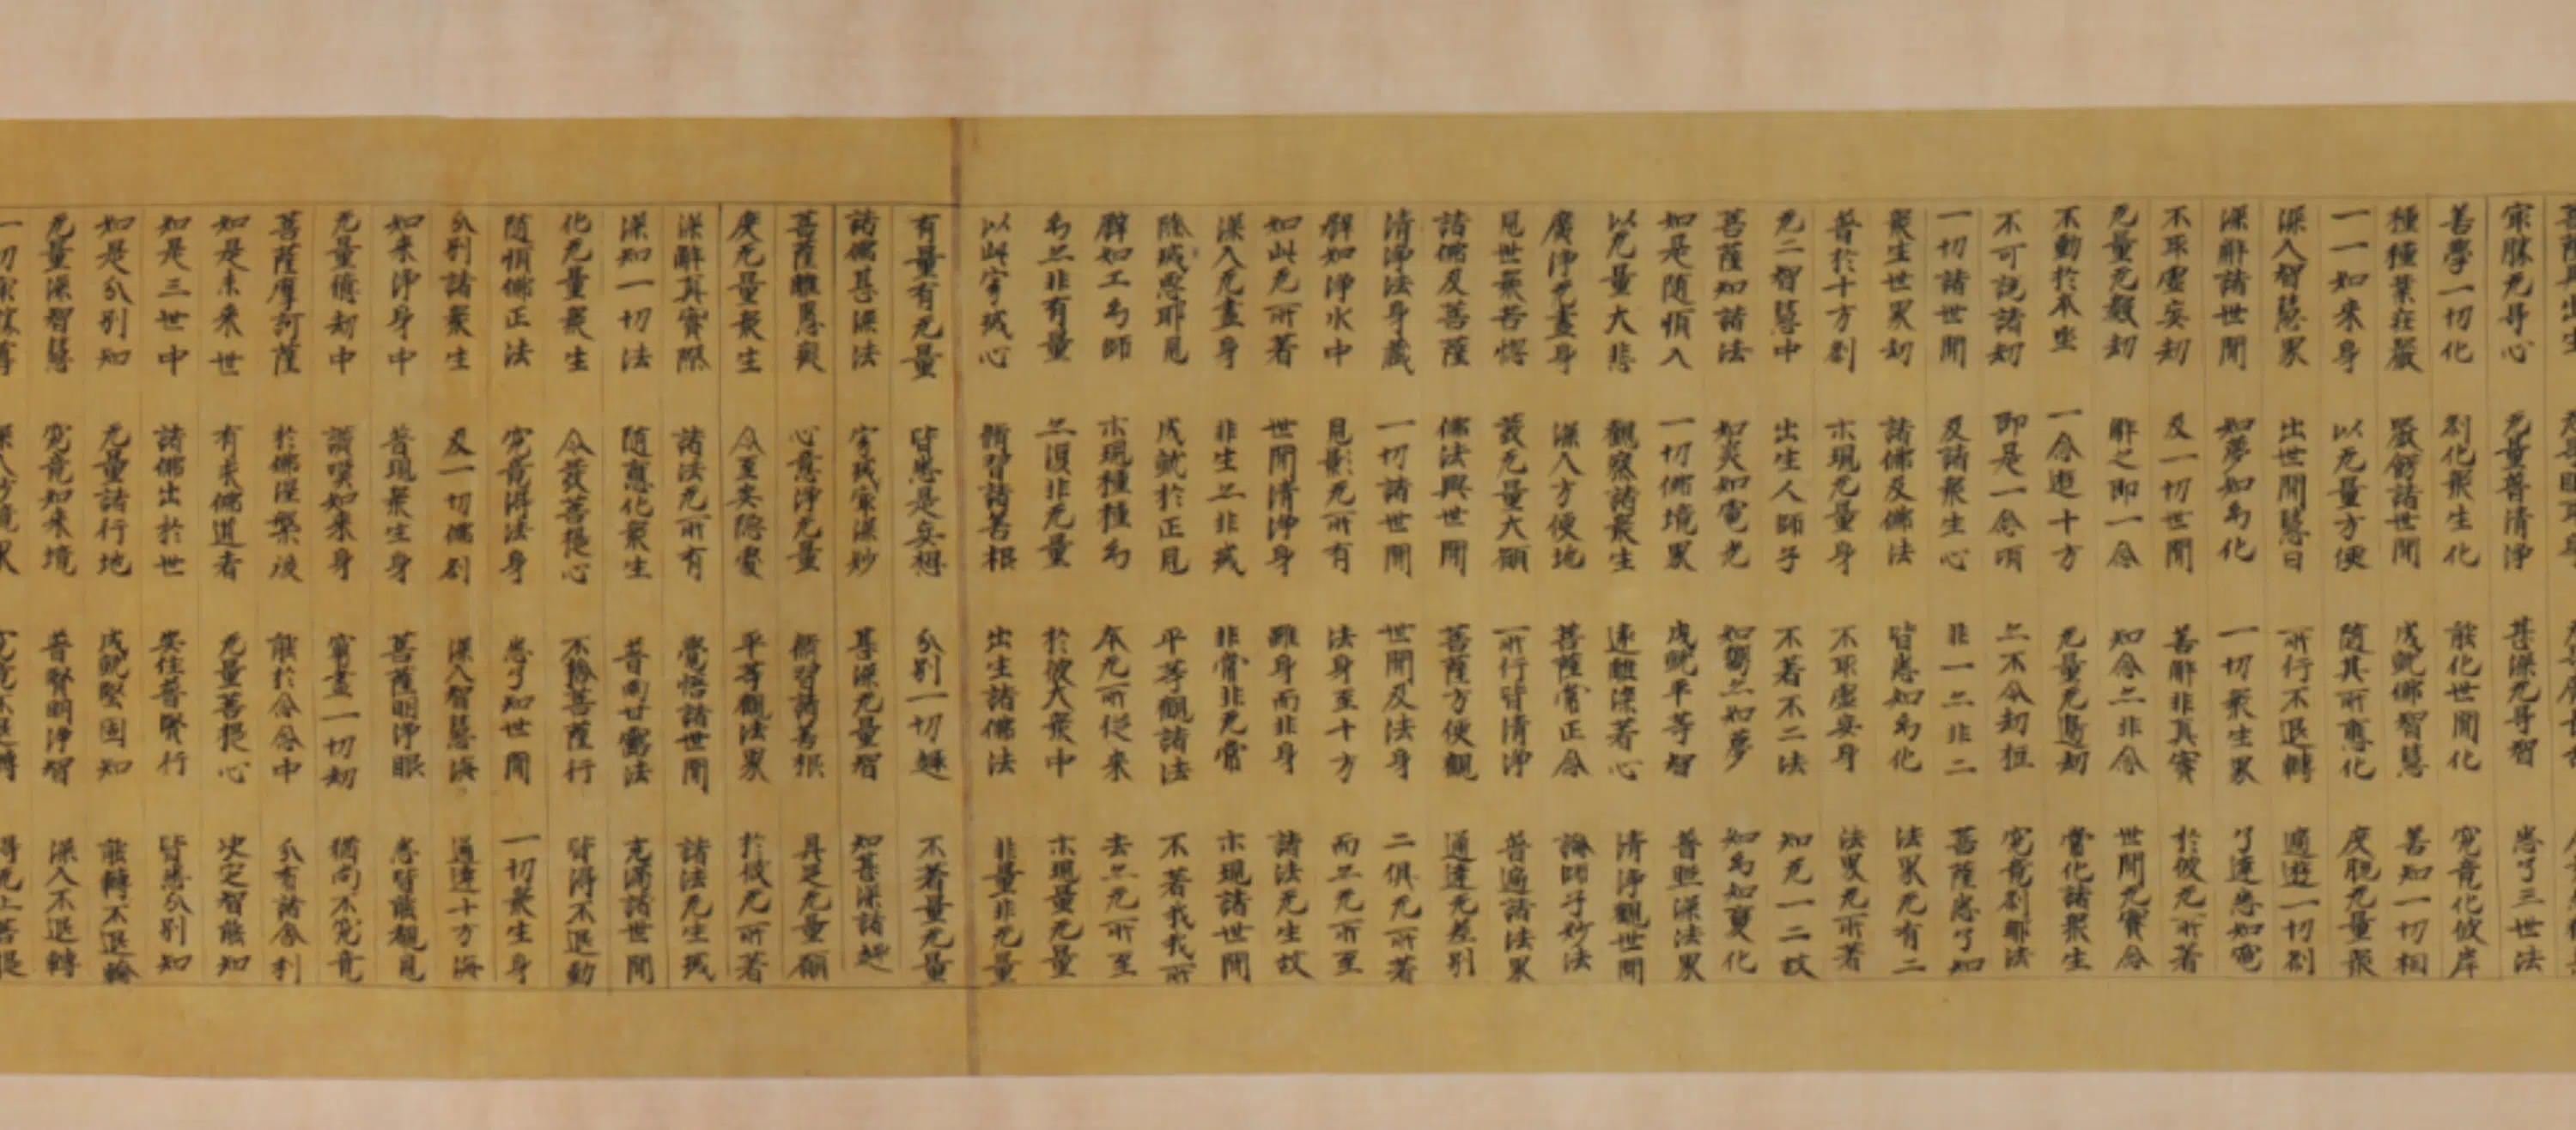 寂滅无㝵心 无量普清淨 甚深无㝵智 悉了三世法
善學一切化 刹化衆生化 能化世間化 究竟化彼岸
種種業莊嚴 嚴飾諸世間 成就佛智慧 善知一切相
一一如来身 以无量方便 随其所應化 度脫无量衆
深入智慧界 出世間慧日 所行不退轉 遍遊一切刹
深解諸世間 如夢如幻化 一切衆生界 了達悉如電
不取虛妄劫 及一切世間 善解非真實 於彼无所著
无量无數劫 解之即一念 知念亦非念 世間无實念
不動於本坐 一念遊十方 无量无邊劫 常化諸衆生
不可說諸劫 即是一念頃 亦不令劫短 究竟刹那法
一切諸世間 及諸衆生心 非一亦非二 菩薩悉了知
衆生世界劫 諸佛及佛法 皆悉如幻化 法界无有二
普於十方刹 示現无量身 不取虛妄身 法界无所著
无二智慧中 出生人師子 不著不二法 知无一二故
菩薩知諸法 如炎如電光 如響亦如夢 如幻如變化
如是随順入 一切佛境界 成就平等智 普照深法界
以无量大悲 觀察諸衆生 遠離染著心 清淨觀世間
廣淨无盡身 深入方便地 菩薩常正念 論師子妙法
見世衆苦惱 發无量大願 所行皆清淨 普遍諸法界
諸佛及菩薩 佛法與世間 菩薩方便觀 通達无差別
清淨法身藏 一切諸世間 世間及法身 二俱无所著
辟如淨水中 見影无所有 法身至十方 而亦无所至
如此无所著 世間清淨身 離身而非身 諸法无生故
深入无盡身 非生亦非滅 非常非无常 示現諸世間
除滅惡耶見 成就於正見 平等觀諸法 不著我我所
辟如工幻師 示現種種幻 本无所從来 去亦无所至
幻亦非有量 亦復非无量 於彼大衆中 示現量无量
以此寂滅心 脩習諸善根 出生諸佛法 非量非无量
有量有无量 皆悉是妄想 分別一切趣 不著量无量
諸佛甚深法 寂滅寂深妙 甚深无量智 知甚深諸趣
菩薩離愚與 心意淨无量 脩習諸善根 具足无量願
度无量衆生 令至安隱處 平等觀法界 於彼无所著
深解真實際 諸法无所有 覺悟諸世間 諸法无生滅
深知一切法 随應化衆生 普雨甘露法 充滿諸世間
化无量衆生 令發菩提心 不捨菩薩行 皆得不退動
随順佛正法 究竟淂法身 悉了知世間 一切衆生身
分別諸衆生 及一切佛刹 深入智慧海 通達十方海
如来淨身中 普現衆生身 菩薩明淨眼 悉皆能覩見
无量億劫中 讚嘆如来身 窮盡一切劫 猶尚不究竟
菩薩摩訶薩 於佛涅槃後 能於念念中 分布諸舍利
如是未来世 有求佛道者 无量菩提心 決定智能知
如是三世中 諸佛出於世 安住普賢行 皆悉分別知
如是分別知 无量諸行地 成就堅固知 能轉不退輪
无量深智慧 究竟如来境 普賢明淨智 深入不退轉